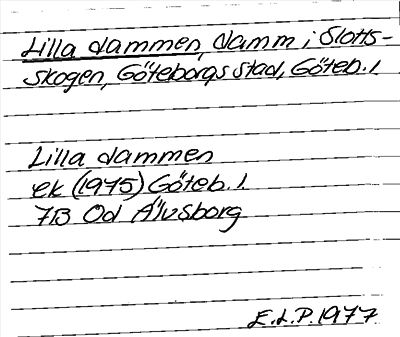 Lilla dammen, damm i Slotts-
skogen, Göteborgs stad, Göteb. l.
Lilla dammen
ek (1975) Göteb. l.
7B Od Älvsborg
E.L.P. 1977